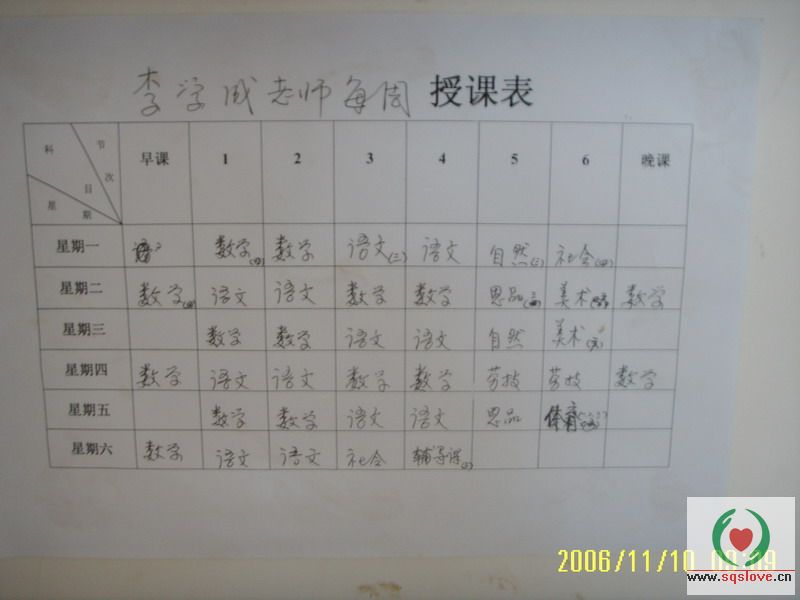 李学成老师每周 授课表
科 节 目 次 星 期 早课 1 2 3 4 5 6 晚课
星期一 语 数学(四) 数学 语文(三) 语文 自然(三) 社会(四)
星期二 数学 语文 语文 数学 数学 思品 美术 数学
星期三 数学 数学 语文 语文 自然 美术
星期四 数学 语文 语文 数学 数学 劳技 劳技 数学
星期五 数学 数学 语文 语文 思品 体育
星期六 数学 语文 语文 社会 辅导课
2006/11/10
www.sqslove.cn